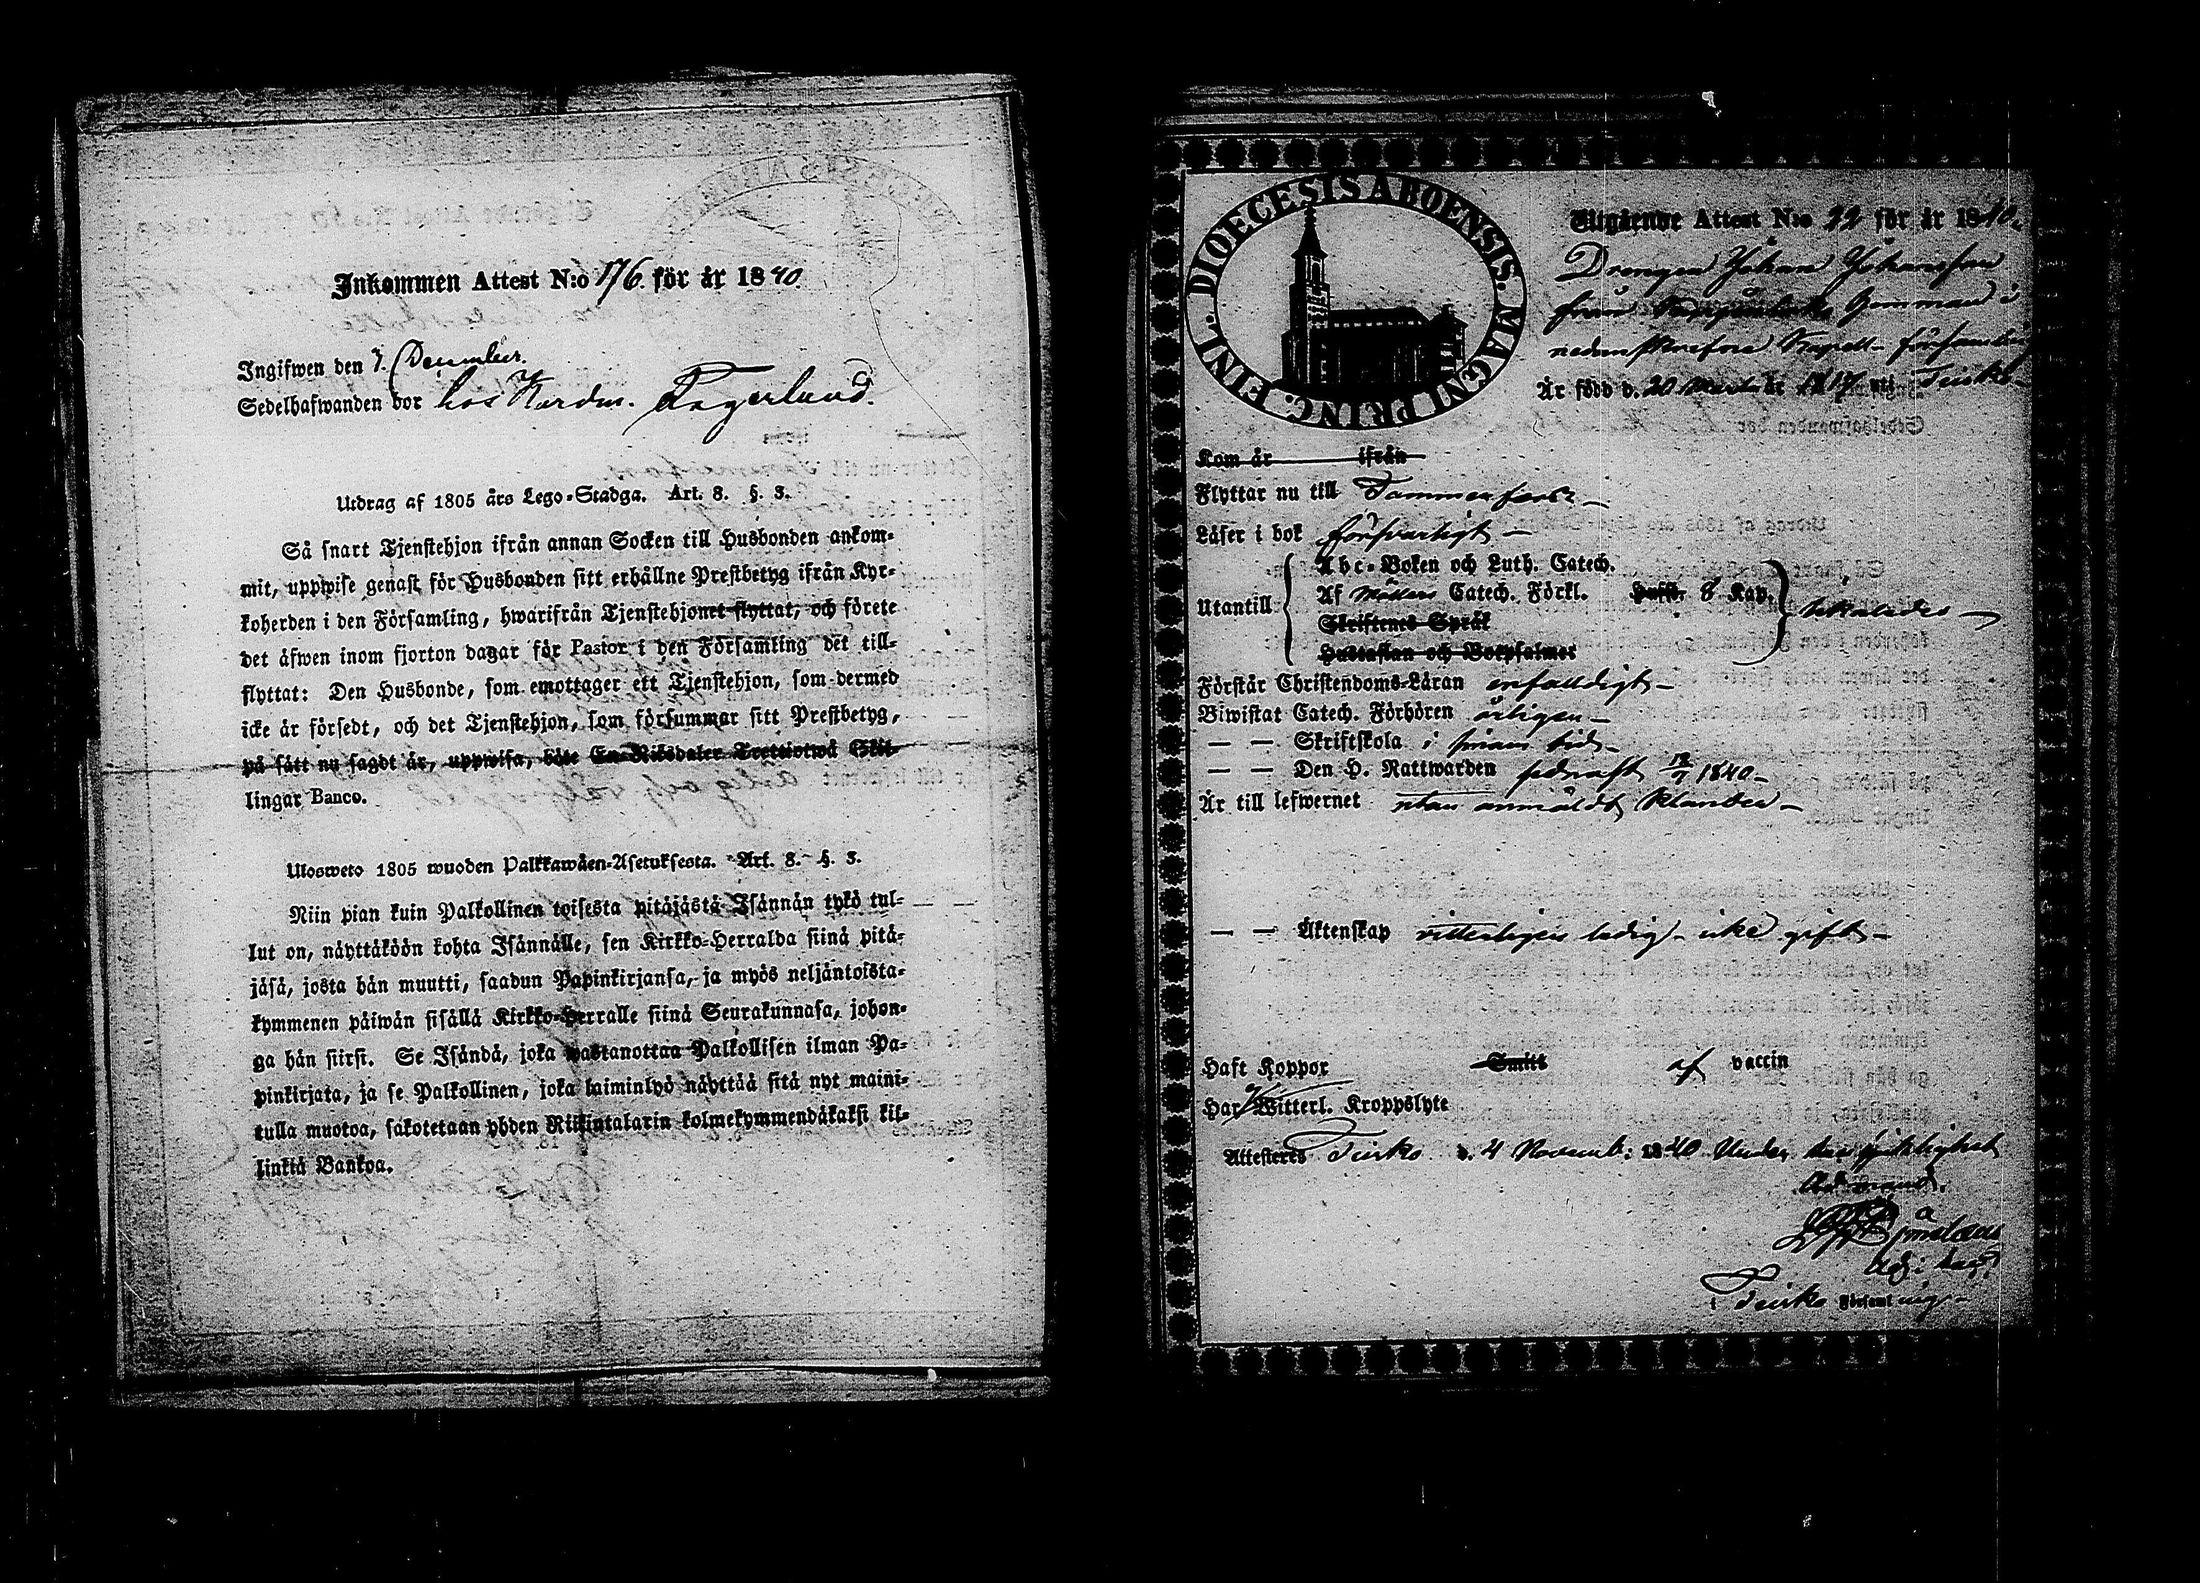 Inkommen Attest N:o 176 för år 1840.
Ingifwen den 7. December.
Sedelhafwanden bor hos Handm. Fagerlund.
Utdrag af 1805 års Lego-Stadga. Art. 8. §. 3.
Så snart Tjenstehjon ifrån annan Socken till Husbonden ankom-
mit, uppwise genast för Husbonden sitt erhållne Prestbetyg ifrån Kyr-
koherden i den Församling, hwarifrån Tjenstehjonet flyttat, och förete
det äfwen inom fjorton dagar för Pastor i den Församling det till-
flyttat: Den Husbonde, som emottager ett Tjenstehjon, som dermed
icke är försedt, och det Tjenstehjon, som försummar sitt Prestbetyg,
på sätt nu sagdt är, uppwisa, böte En Riksdaler Trettiotwå Skil-
lingar Banco.
Ulosweto 1805 wuoden Palkkawäen-Asetuksesta. Art. 8. §. 3.
Niin pian kuin Palkollinen toisesta pitäjästä Isännän tykö tul-
lut on, näyttäköön kohta Isännälle, sen Kirkko-Herralda siinä pitä-
jäsä, josta hän muutti, saadun Papinkirjansa, ja myös neljäntoista-
kymmenen päiwän sisällä Kirkko-Herralle siinä Seurakunnasa, johon-
ga hän siirsi. Se Isändä, joka wastanottaa Palkollisen ilman Pa-
pinkirjata, ja se Palkollinen, joka laiminlyö näyttää sitä nyt maini-
tulla muotoa, sakotetaan yhden Riikintalarin kolmekymmendäkaksi kil-
linkiä Bankoa.
DIOECESIS ABOENSIS. MAGNI PRINC. FINL.
Utgående Attest N:o 22 för år 1840.
Drengen Johan Johansson
från Gumman i
nedanskrefne Kapell-församling
Är född d. 20 Martii år 1817 uti Teisko
Kom år ifrån
Flyttar nu till Tammerfors
Läser i bok försvarligt
Utantill
Abc-Boken och Luth. Catech.
Af Möllers Catech. Förkl. Hufst. 8 Kap.
Skriftenes Språk
Hustaflan och Botpsalmer
Förstår Christendoms-Läran enfaldigt
Biwistat Catech. Förhören årligen
— — Skriftskola i sinom tid
— — Den H. Nattwarden sednast 12/7 1840
Är till lefwernet utan anmäldt klander
— — Äktenskap vitterligen ledig - icke gift
Haft Koppor Smitt af vaccin
Har Witterl. Kroppslyte
Attesteras Teisko d. 4 Novemb: 1840 Under
Adj:
i Teisko Församling